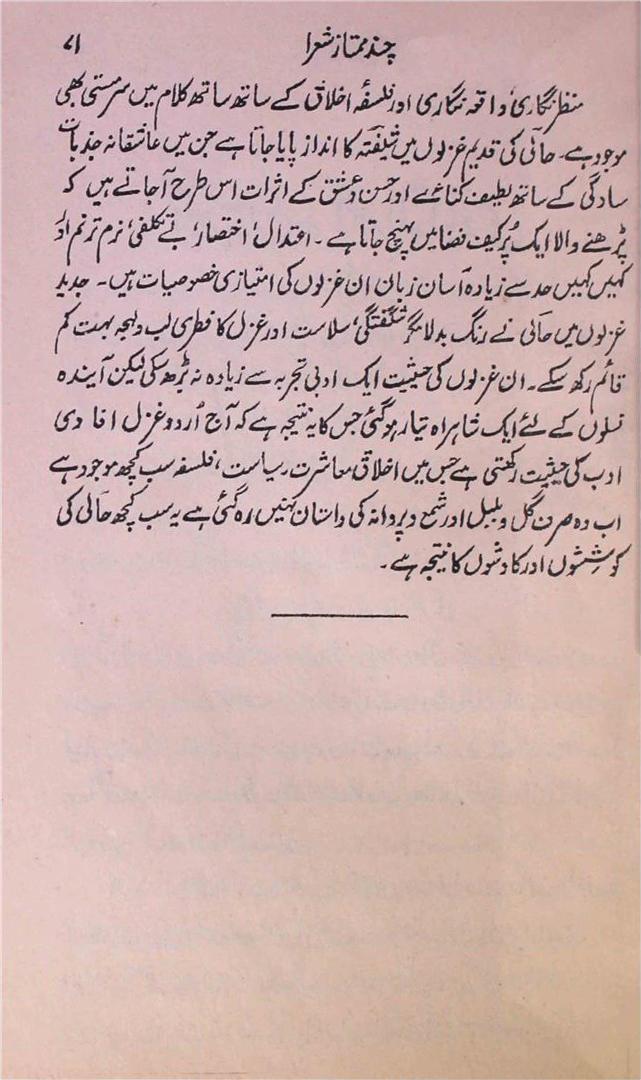 چند ممتاز شعرا ۷۱
منظر نگاری، واقعہ نگاری اور فلسفۂ اخلاق کے ساتھ ساتھ کلام میں سرمستی بھی
موجود ہے۔ حالؔی کی قدیم غزلوں میں شیفتہؔ کا انداز پایا جاتا ہے جن میں عاشقانہ جذبات
سادگی کے ساتھ لطیف کنائے اور حسن و عشق کے اثرات اس طرح آ جاتے ہیں کہ
پڑھنے والا ایک پُر کیف فضا میں پہنچ جاتا ہے۔ اعتدال، اختصار، بے تکلفی، نرم ترنم اور
کہیں کہیں حد سے زیادہ آسان زبان ان غزلوں کی امتیازی خصوصیات ہیں۔ جدید
غزلوں میں حالؔی نے رنگ بدلا مگر شگفتگی، سلاست اور غزل کا فطری لب و لہجہ بہت کم
قائم رکھ سکے۔ ان غزلوں کی حیثیت ایک ادبی تجربہ سے زیادہ نہ بڑھ سکی لیکن آیندہ
نسلوں کے لئے ایک شاہراہ تیار ہو گئی جس کا یہ نتیجہ ہے کہ آج اُردو غزل افادی
ادب کی حیثیت رکھتی ہے جس میں اخلاق معاشرت ریاست، فلسفہ سب کچھ موجود ہے
اب وہ صرف گل و بلبل اور شمع و پروانہ کی داستان نہیں رہ گئی ہے یہ سب کچھ حالی کی
کوششوں اور کاوشوں کا نتیجہ ہے۔